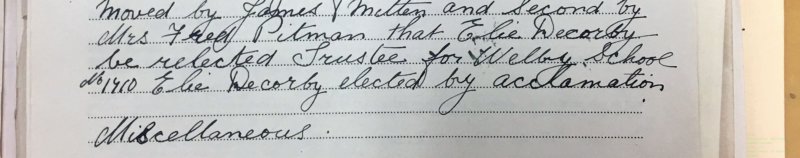 moved by James Mitten and Second by
Mrs Fred Pitman that Elie Decorby
be relected Trustee for Welby School
No 1910 Elie Decorby elected by acclamation
Miscellaneous.